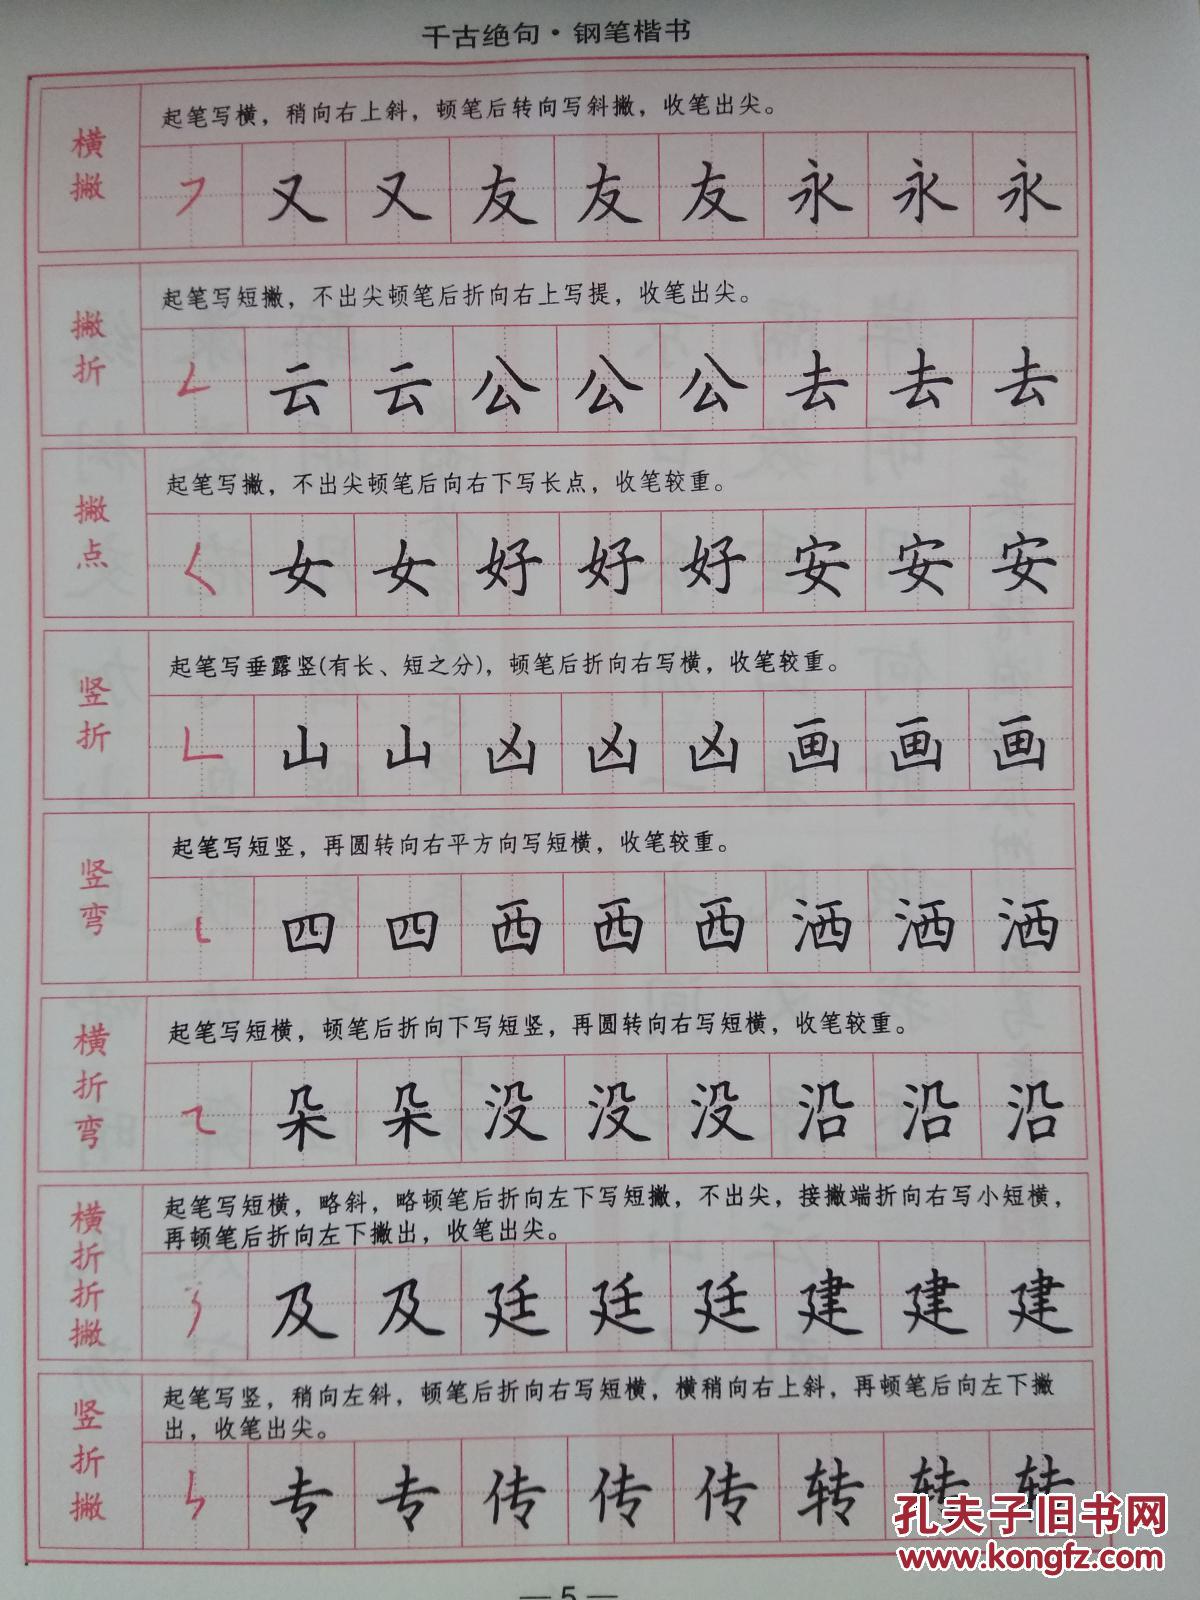 千古绝句·钢笔楷书
横撇
起笔写横，稍向右上斜，顿笔后转向写斜撇，收笔出尖。
㇇ 又 又 友 友 友 永 永 永
撇折
起笔写短撇，不出尖顿笔后折向右上写提，收笔出尖。
𠃋 云 云 公 公 公 去 去 去
撇点
起笔写撇，不出尖顿笔后向右下写长点，收笔较重。
㇛ 女 女 好 好 好 安 安 安
竖折
起笔写垂露竖(有长、短之分)，顿笔后折向右写横，收笔较重。
㇗ 山 山 凶 凶 凶 画 画 画
竖弯
起笔写短竖，再圆转向右平方向写短横，收笔较重。
㇄ 四 四 西 西 西 洒 洒 洒
横折弯
起笔写短横，顿笔后折向下写短竖，再圆转向右写短横，收笔较重。
㇍ 朵 朵 没 没 没 沿 沿 沿
横折折撇
起笔写短横，略斜，略顿笔后折向左下写短撇，不出尖，接撇端折向右写小短横，
再顿笔后折向左下撇出，收笔出尖。
㇋ 及 及 廷 廷 廷 建 建 建
竖折撇
起笔写竖，稍向左斜，顿笔后折向右写短横，横稍向右上斜，再顿笔后向左下撇
出，收笔出尖。
ㄣ 专 专 传 传 传 转 转 转
孔夫子旧书网
www.kongfz.com
— 5 —